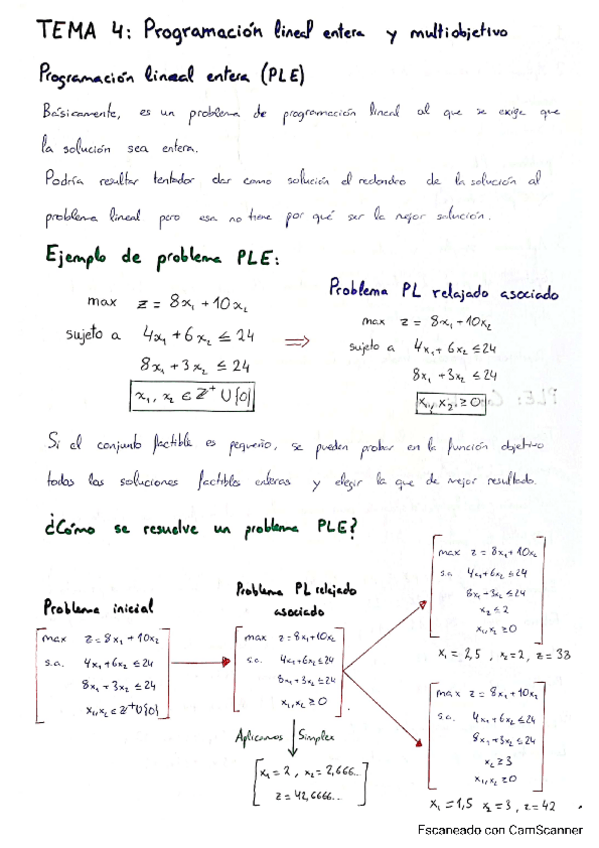 TEMA 4: Programación lineal entera y multiobjetivo
Programación lineal entera (PLE)
Básicamente, es un problema de programación lineal al que se exige que
la solución sea entera.
Podría resultar tentador dar como solución el redondeo de la solución al
problema lineal pero esa no tiene por qué ser la mejor solución.
Ejemplo de problema PLE:
max z = 8x₁ + 10x₂
sujeto a 4x₁ + 6x₂ ≤ 24
8x₁ + 3x₂ ≤ 24
x₁, x₂ ∈ Z⁺ ∪ {0}
⇒
Problema PL relajado asociado
max z = 8x₁ + 10x₂
sujeto a 4x₁ + 6x₂ ≤ 24
8x₁ + 3x₂ ≤ 24
x₁, x₂ ≥ 0
Si el conjunto factible es pequeño, se pueden probar en la función objetivo
todas las soluciones factibles enteras y elegir la que de mejor resultado.
¿Cómo se resuelve un problema PLE?
Problema inicial
max z = 8x₁ + 10x₂
s.a. 4x₁ + 6x₂ ≤ 24
8x₁ + 3x₂ ≤ 24
x₁, x₂ ∈ Z⁺ ∪ {0}
Problema PL relajado
asociado
max z = 8x₁ + 10x₂
s.a. 4x₁ + 6x₂ ≤ 24
8x₁ + 3x₂ ≤ 24
x₁, x₂ ≥ 0
Aplicamos Simplex
x₁ = 2, x₂ = 2,666...
z = 42,6666...
max z = 8x₁ + 10x₂
s.a. 4x₁ + 6x₂ ≤ 24
8x₁ + 3x₂ ≤ 24
x₂ ≤ 2
x₁, x₂ ≥ 0
x₁ = 2,5, x₂ = 2, z = 38
max z = 8x₁ + 10x₂
s.a. 4x₁ + 6x₂ ≤ 24
8x₁ + 3x₂ ≤ 24
x₂ ≥ 3
x₁, x₂ ≥ 0
x₁ = 1,5 x₂ = 3, z = 42
Escaneado con CamScanner